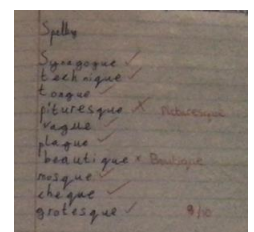 Spelling
Synagogue ✓
technique ✓
tongue ✓
pituresque ✗ Picturesque
vague ✓
plague ✓
beautique ✗ Boutique
mosque ✓
cheque ✓
grotesque ✓ 8/10